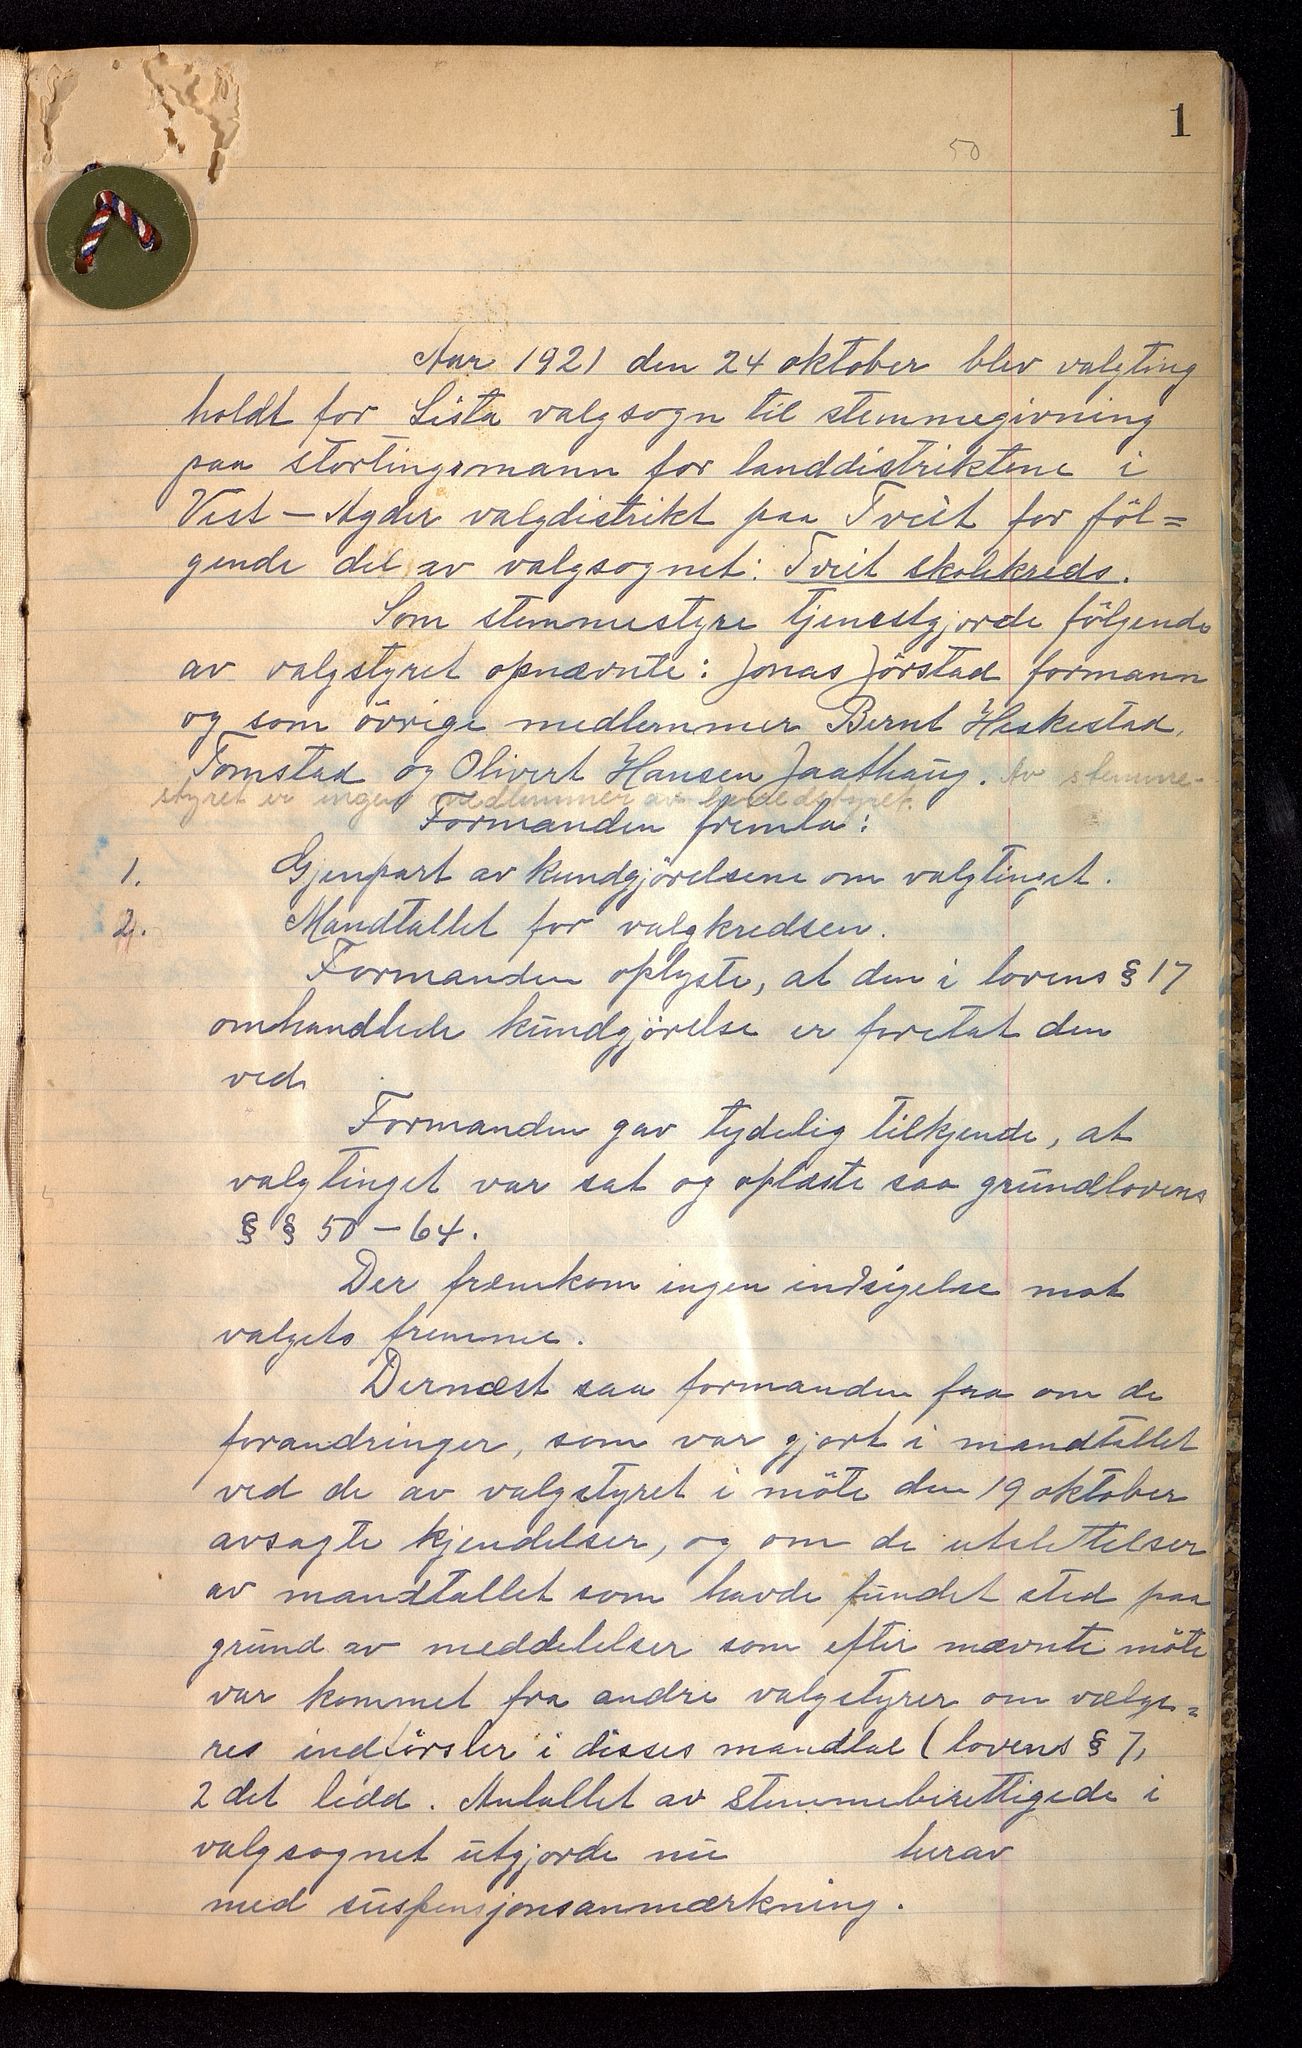 1
50
Aar 1921 den 24 oktober blev valgting
holdt for Lista valgsogn til stemmegivning
paa stortingsmann for landdistriktene i
Vest-Agder valgdistrikt paa Tveit for föl=
gende del av valgsognet: Tveit skolekreds.
Som stemmestyre tjenestgjorde följende
av valgstyret opnævnte: Jonas Jörstad formann
og som övrige medlemmer Bernt Heskestad,
Tomstad og Olivert Hansen Jaathaug. Av stemme-
styret er ingen medlemmer av heredstyret.
Formanden fremla:
1. Gjenpart av kundgjörelsene om valgtinget.
2. Mandtallet for valgkredsen.
Formanden oplyste, at den i lovens § 17
omhandlede kundgjörelse er foretat den
ved
Formanden gav tydelig tilkjende, at
valgtinget var sat og oplæste saa grundlovens
§ § 50-64.
Der fremkom ingen indsigelse mot
valgets fremme.
Dernæst saa formanden fra om de
forandringer, som var gjort i mandtallet
ved de av valgstyret i möte den 19 oktober
avsagte kjendelser, og om de utslettelser
av mandtallet som havde fundet sted paa
grund av meddelelser som efter nævnte möte
var kommet fra andre valgstyrer om vælge=
res indförsler i disses mandtal (lovens § 7,
2 det ledd. Antallet av stemmeberettigede i
valgsognet utgjorde nu herav
med suspensjonsanmærkning.